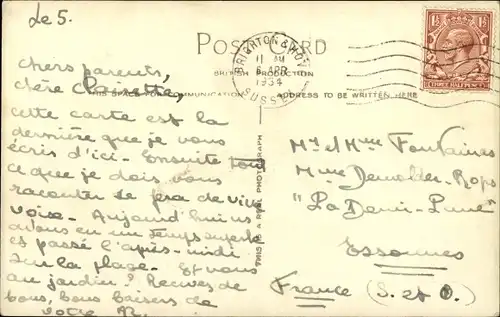 Le 5.
POST CARD
BRIGHTON & HOVE
11 AM
6 APR
1934
SUSSEX
1½ 1½
THREE HALFPENCE
BRITISH PRODUCTION
THIS SPACE FOR COMMUNICATION
ADDRESS TO BE WRITTEN HERE
THIS IS A REAL PHOTOGRAPH
chers parents,
chère Clairette,
cette carte est la
dernière que je vous
écris d'ici. Ensuite tout
ce que je dois vous
raconter se fera de vive
voix. Aujourd'hui nous
avons eu un temps superbe
et passé l'après-midi
sur la plage. Et vous
au jardin? Recevez de
tous, bons baisers de
votre
Mr et Mme Fontaines
Mme Demolder-Rops
"La Demi-Lune"
Essonnes
France (S. et O.)